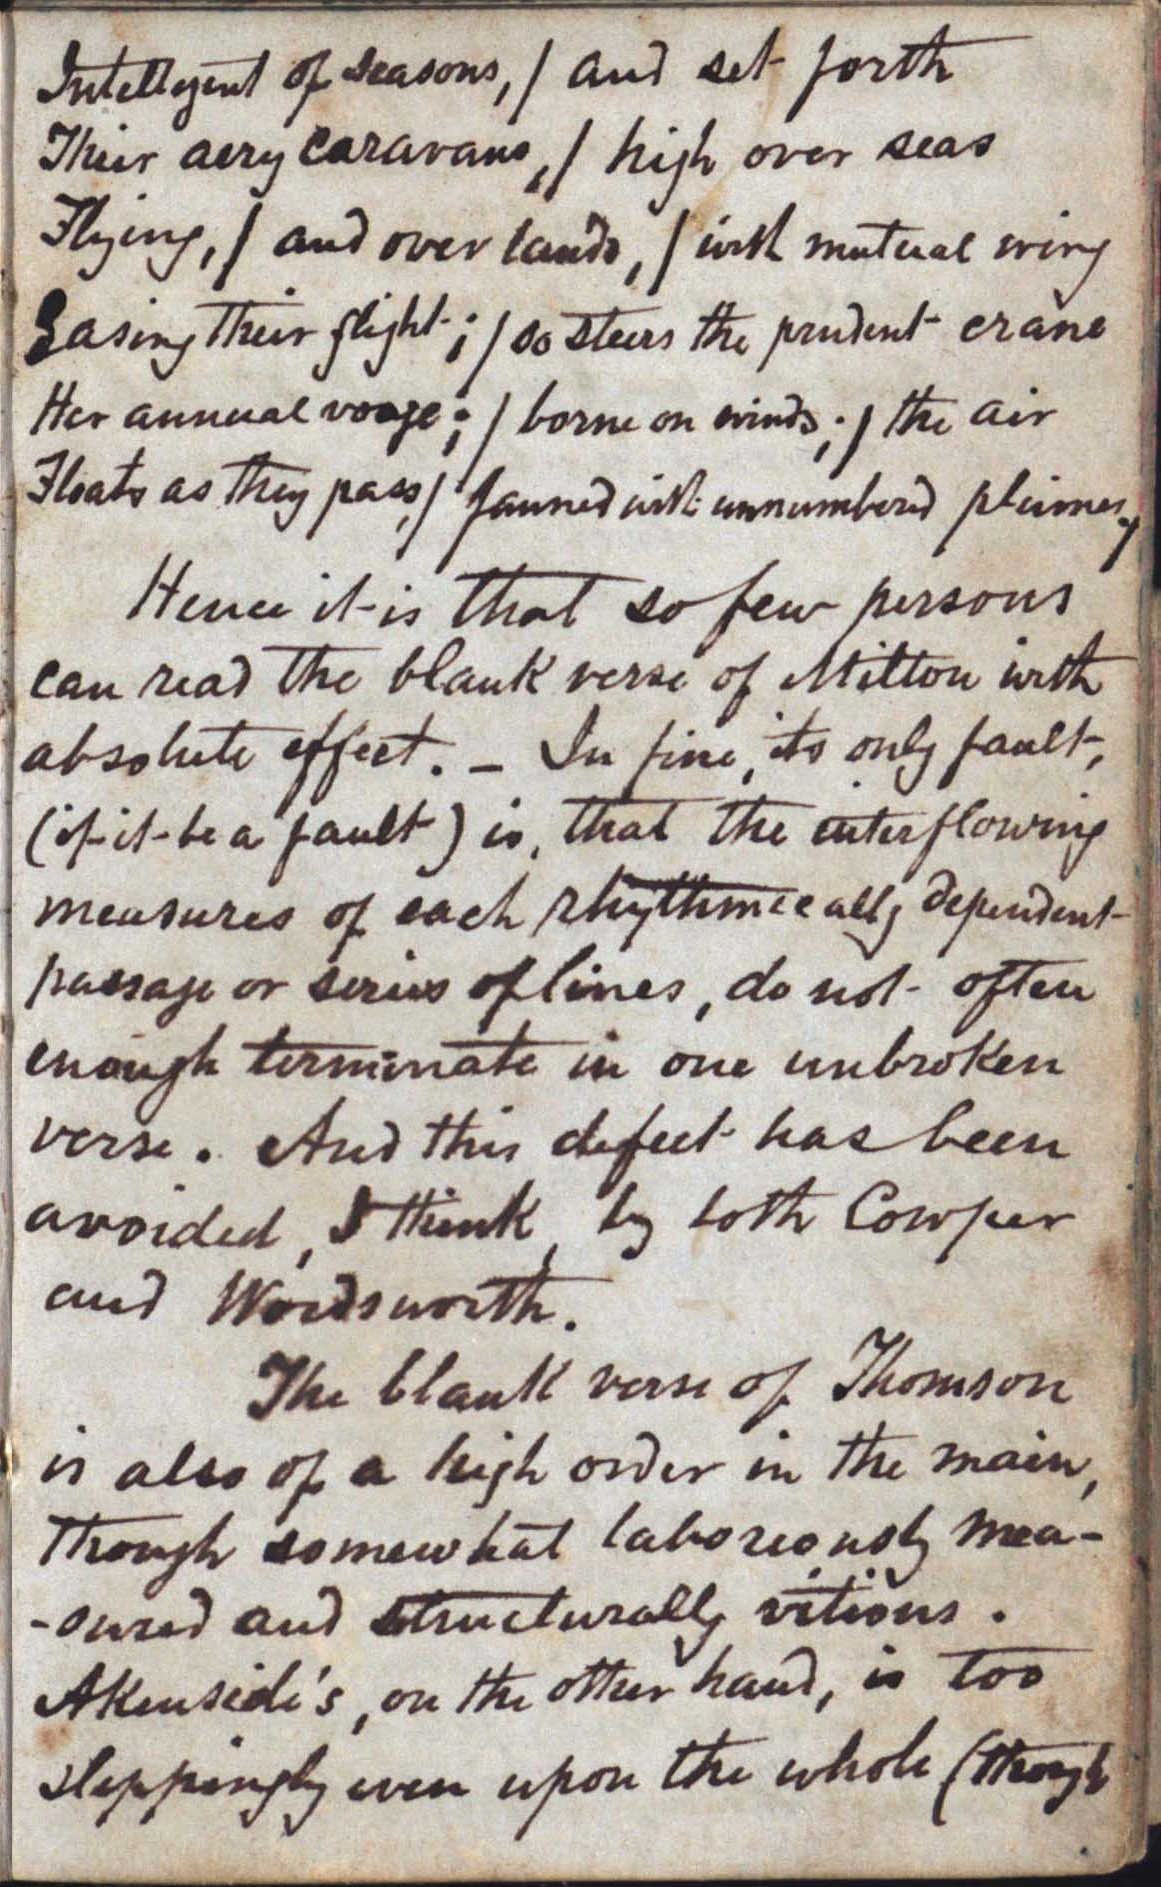 Intelligent of seasons, / and set forth
Their aery caravans, / high over seas
Flying, / and over lands, / with mutual wing
Easing their flight; / so steers the prudent crane
Her annual voage; / borne on winds; / the air
Floats as they pass, / fanned with unnumbered plumes,
Hence it is that so few persons
can read the blank verse of Milton with
absolute effect. – In fine, its only fault,
(if it be a fault) is, that the interflowing
measures of each rhythmically dependent
passage or series of lines, do not often
enough terminate in one unbroken
verse. And this defect has been
avoided, I think, by both Cowper
and Wordsworth.
The blank verse of Thomson
is also of a high order in the main,
though somewhat laboreously mea-
-sured and structurally vitious.
Akenside's, on the other hand, is too
steppingly even upon the whole (though